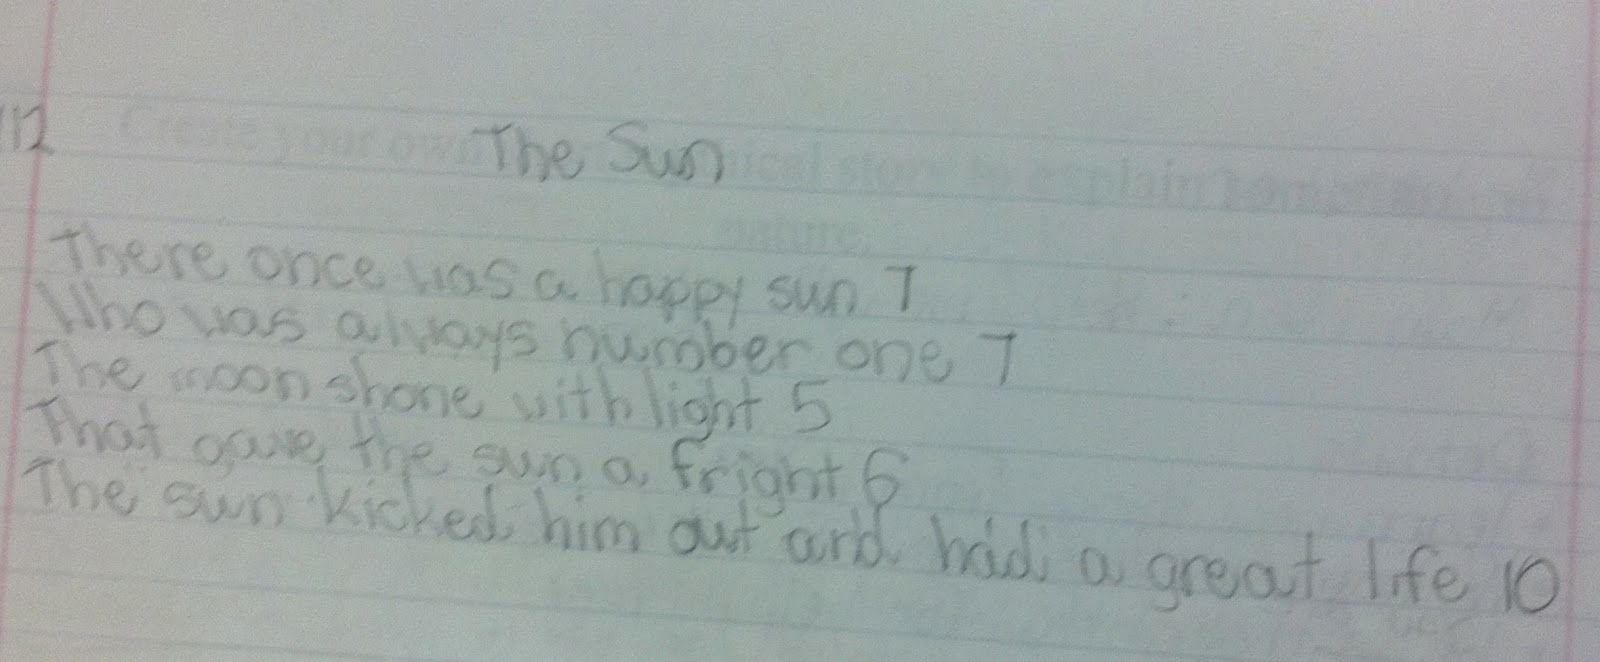 112
The Sun
There once was a happy sun 7
Who was always number one 7
The moon shone with light 5
That gave the sun a fright 6
The sun kicked him out and had a great life 10
Create your own ical story to explain
nature.